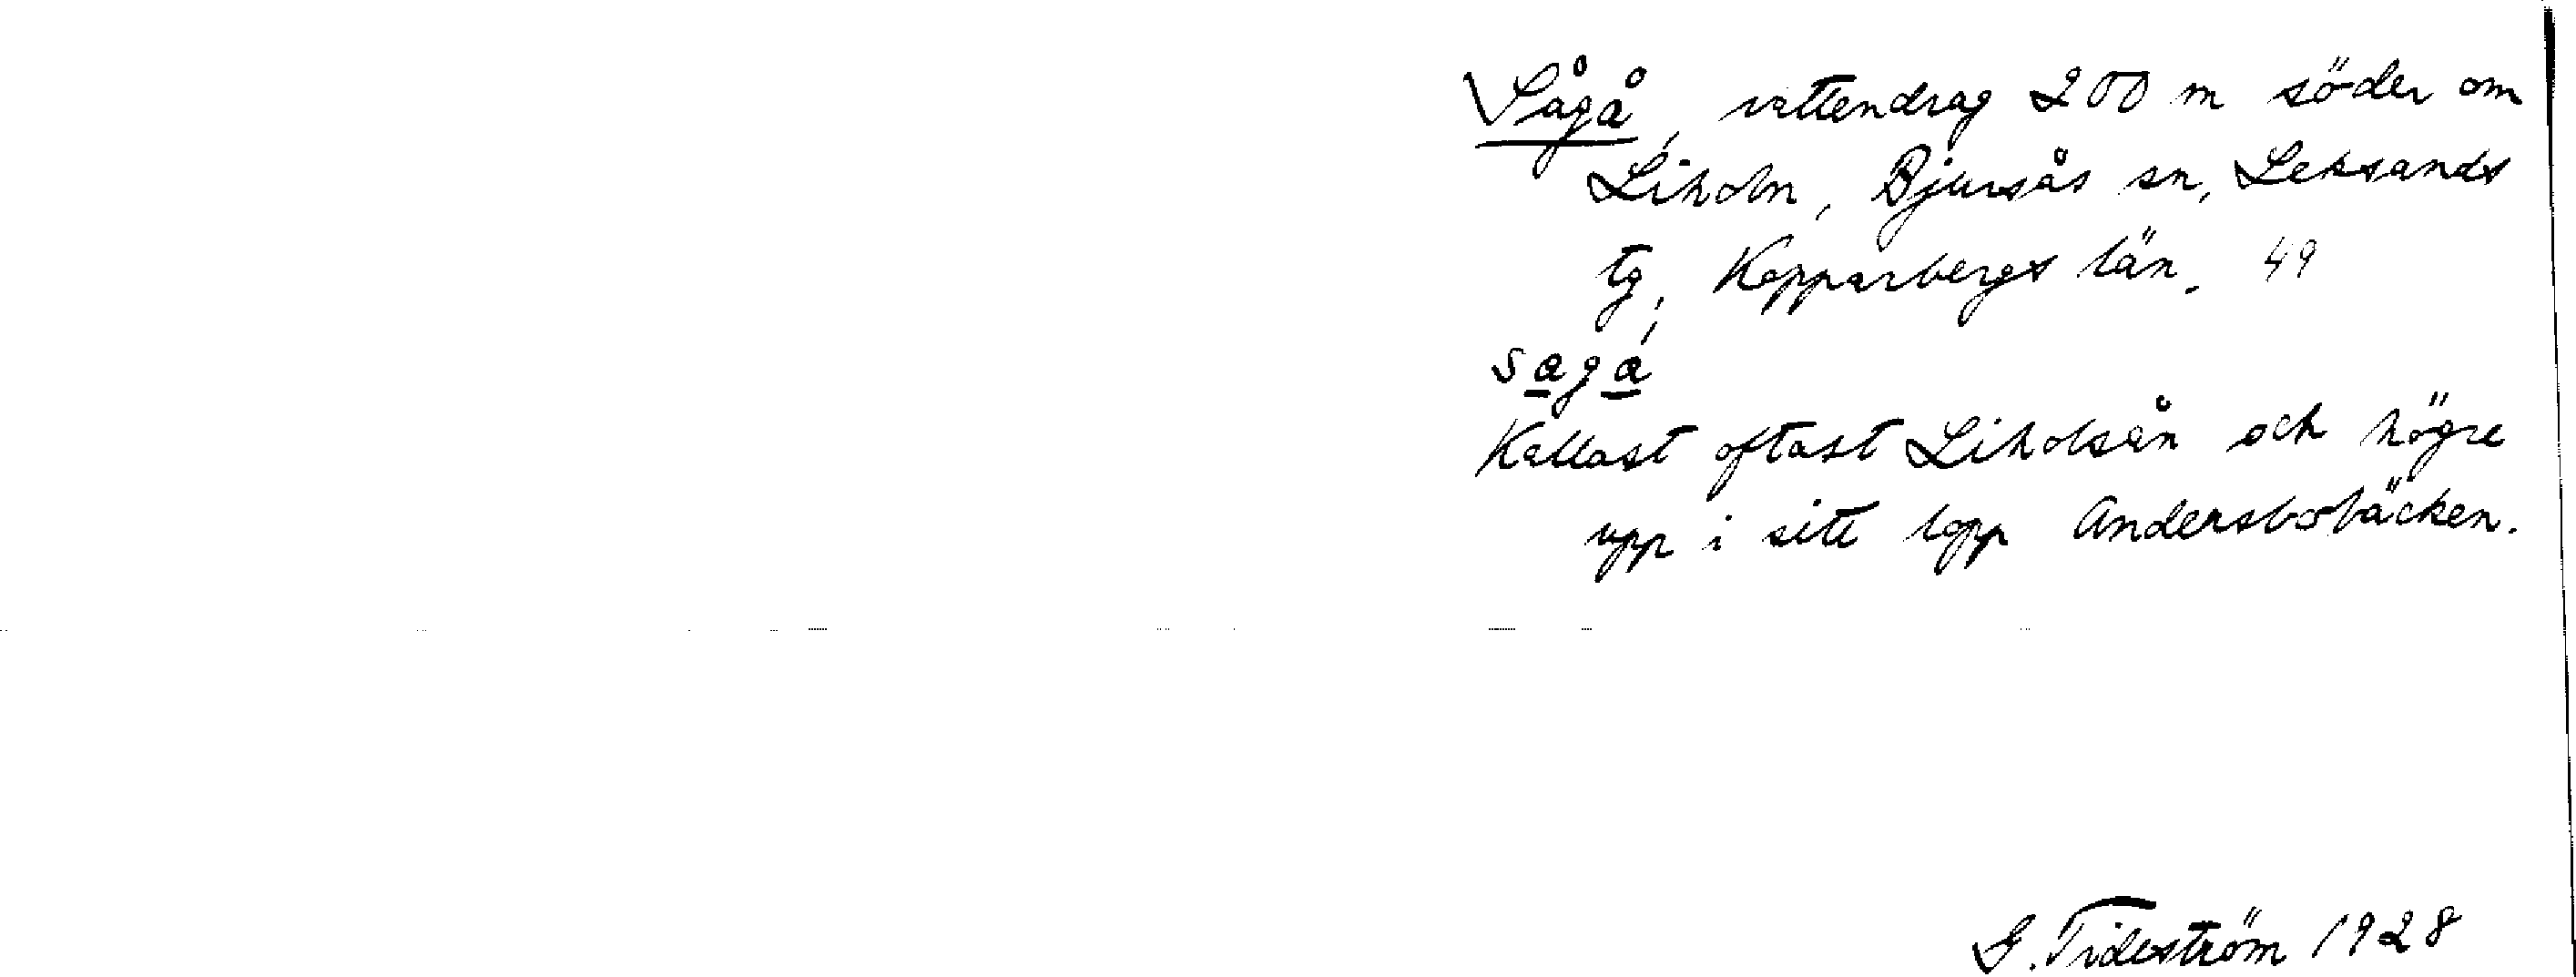 Sågå, vattendrag 200 m söder om
Liholn, Bjursås sn, Leksands
tg, Kopparbergs län. 49
sagá
Kallast oftast Liholsån och högre
upp i sitt lopp Andersbobäcken.
G. Tideström 1928